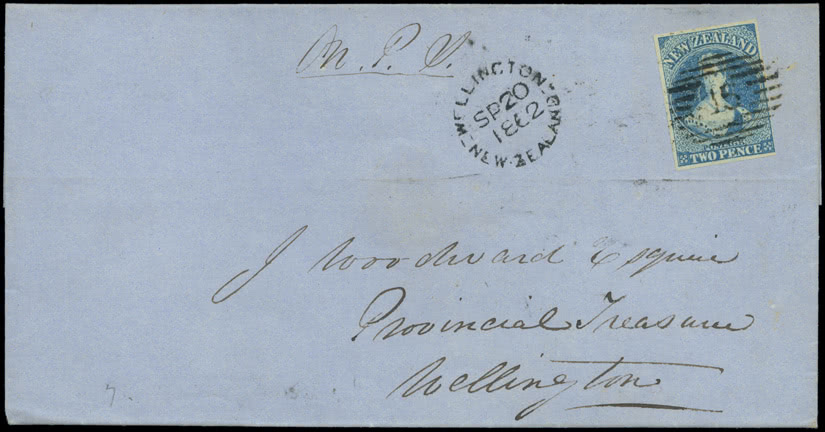 M. P. S.
NEW ZEALAND
WELLINGTON
SP 20
1862
NEW-ZEALAND
TWO PENCE
J Woodward Esquire
Provincial Treasurer
Wellington
7.